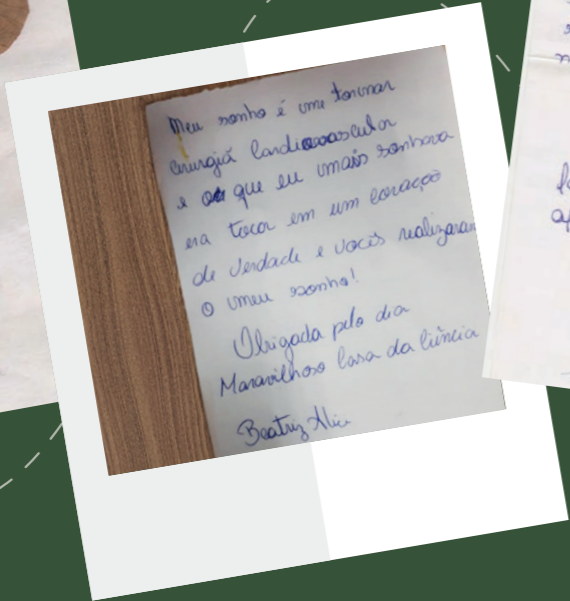 Meu sonho é ume tornar
cirurgiã Cardiovascular
e o que eu umais sonhava
era tocar em um coração
de verdade e vocês realizaram
o umeu sonho!
Obrigada pelo dia
Maravilhoso Casa da Ciência
Beatriz Alice